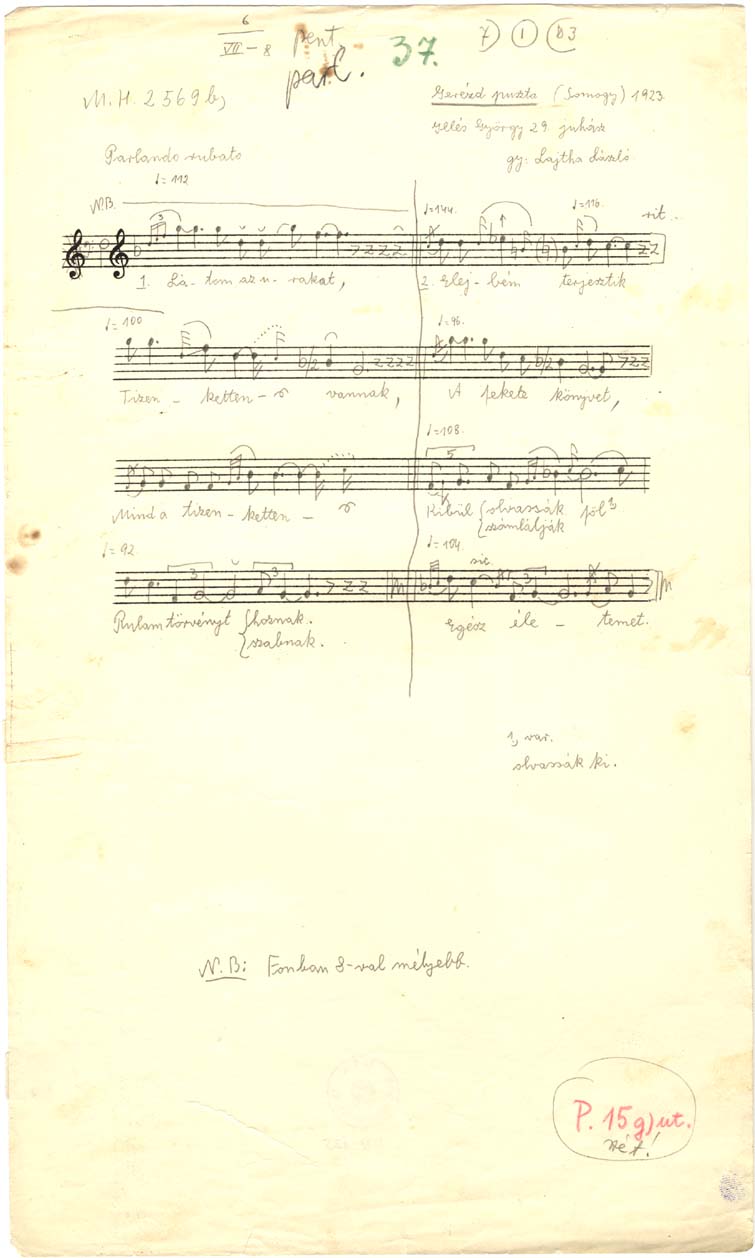 6
VII - 8
pent
parl.
37.
7) 1 b3
M.H. 2569 b,
Gerézd puszta (Somogy) 1923.
Jelés György 29. juhász
gy: Lajtha László
Parlando rubato
♩=112
N.B.
♩=144.
♩=116.
rit.
1. Lá-tom az u-rakat,
2. Elej-bém terjesztik
♩=100
♩=96.
Tizen-ketten-ő vannak,
A fekete könyvet,
♩=108.
Mind a tizen-ketten-ő
Kibül olvassák föl 1)
számlálják
♩=92
♩=104
sic.
Rulam törvényt hoznak.
szabnak.
Egész éle-temet.
1, var.
olvassák ki.
N.B: Fonban 8-val mélyebb.
P. 15 g) ut.